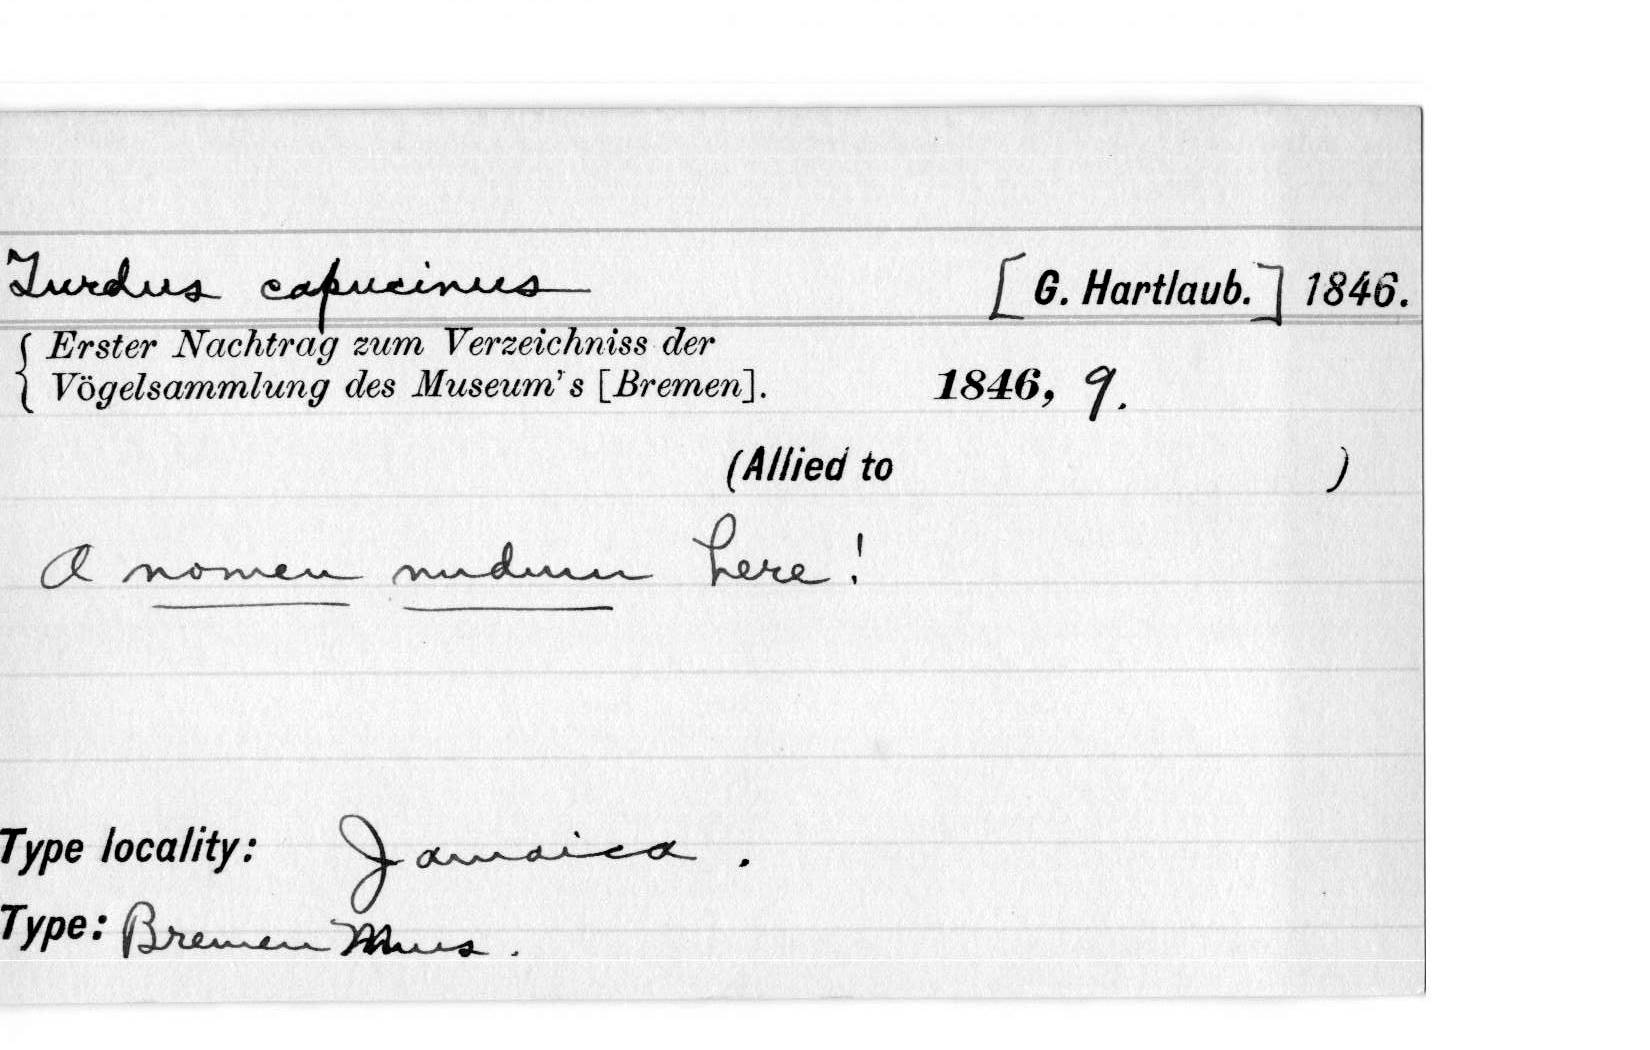 Turdus capucinus [G. Hartlaub.] 1846.
{ Erster Nachtrag zum Verzeichniss der
Vögelsammlung des Museum's [Bremen]. 1846, 9.
(Allied to )
A nomen nudum here!
Type locality: Jamaica.
Type: Bremen Mus.